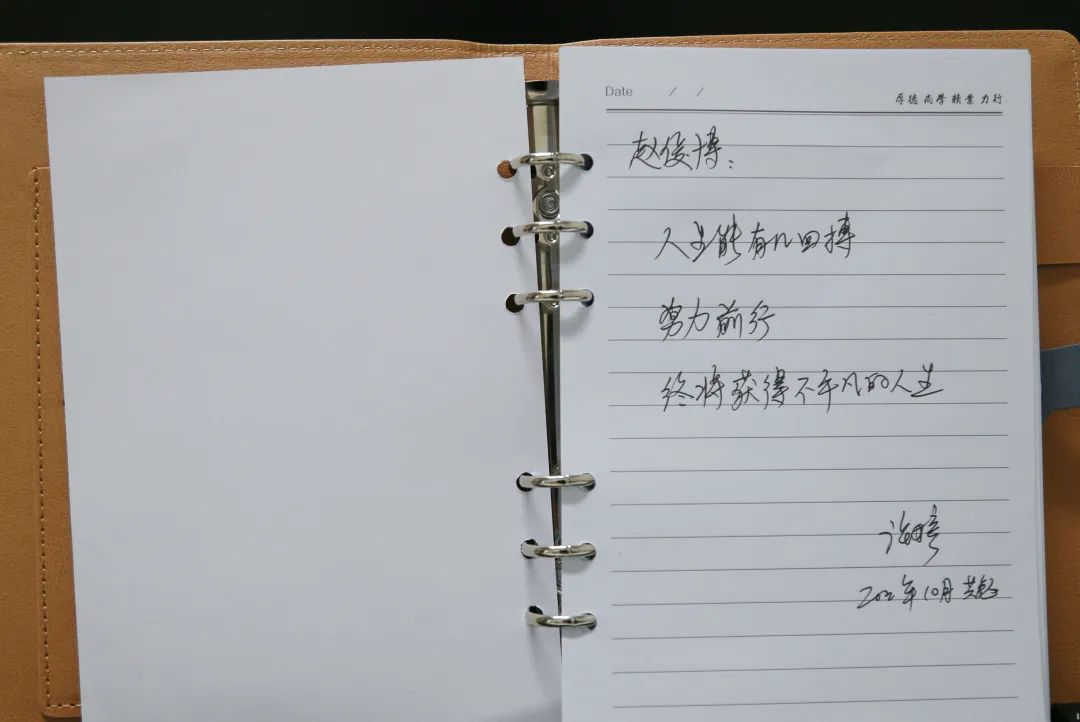 Date / /
厚德 尚学 精业 力行
赵俊博：
人生能有几回搏
努力前行
终将获得不平凡的人生
年10月